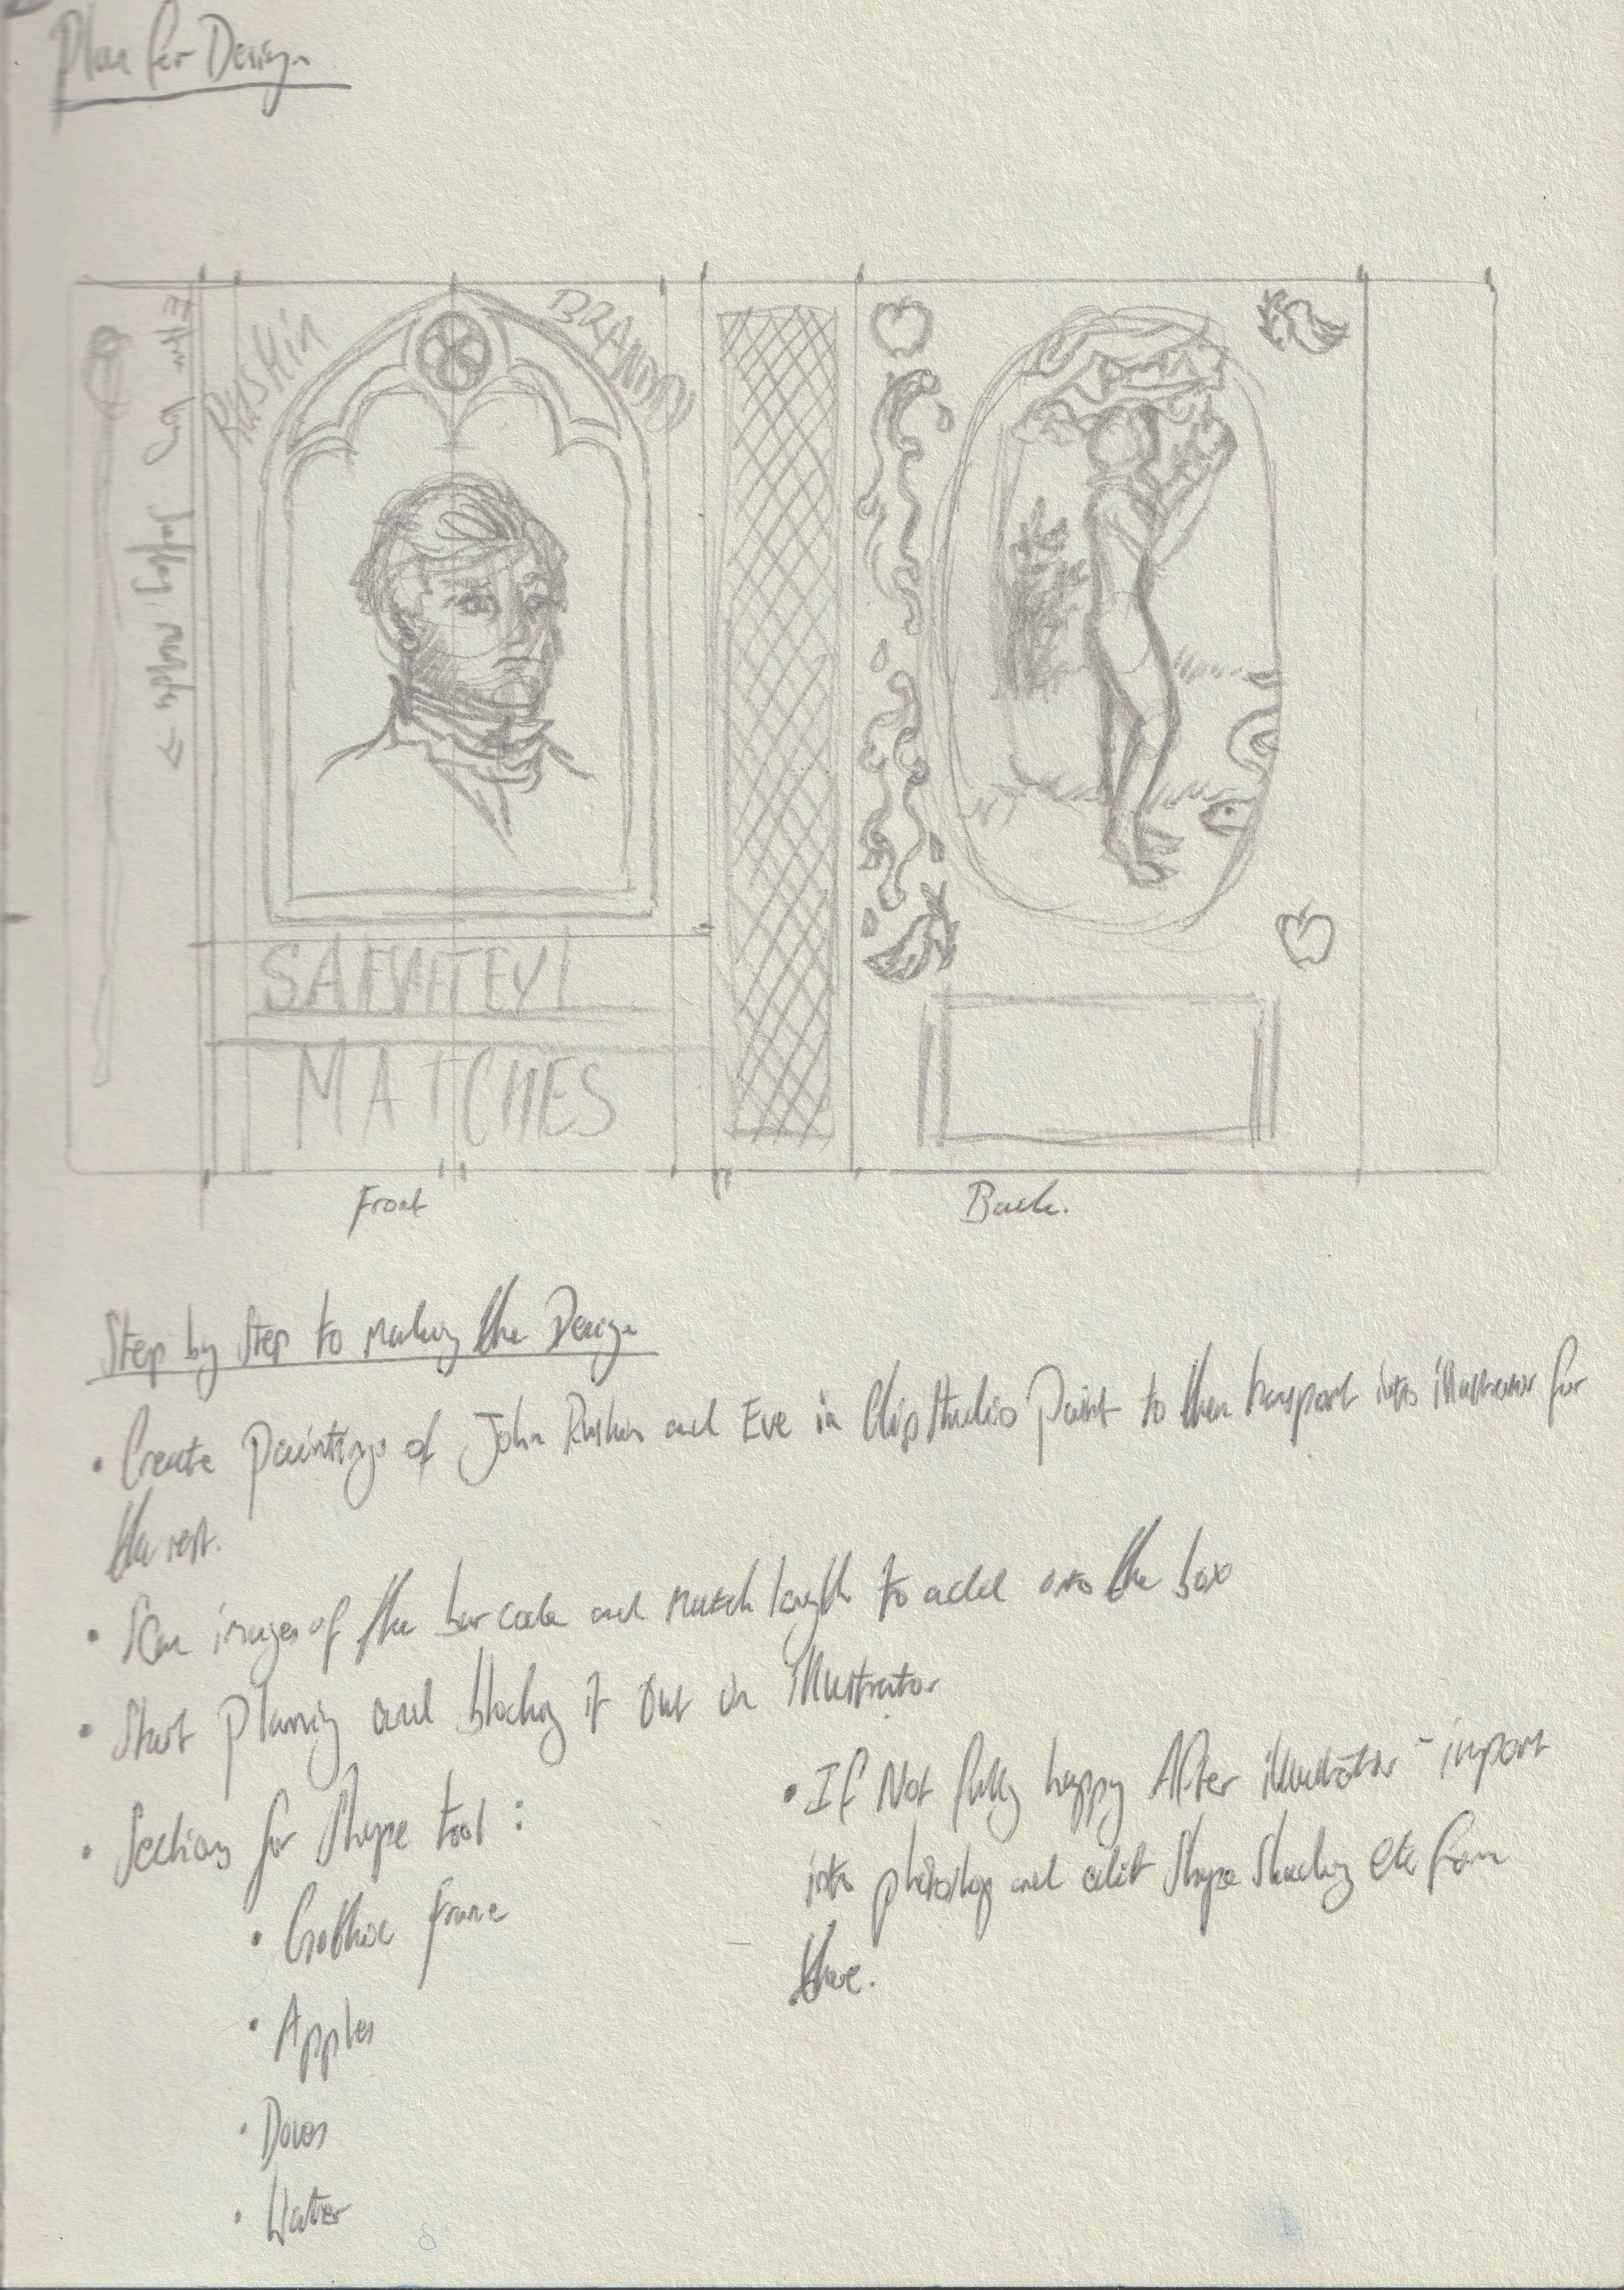 Plan for Design
RUSKIN
BRANDON
Extra long
MATCHES
Front
Back.
Step by Step to making the Design
• Create paintings of John Ruskin and Eve in Clip Studio Paint to then transport into illustrator for
the rest.
• Scan images of the bar code and match length to add onto the box
• Start planing and blocking it out in Illustrator
• Sections for Shape tool:
• Gothic frame
• Apples
• Doves
• Water
• If Not fully happy After illustrator - import
into photoshop and edit Shape Shading etc from
there.